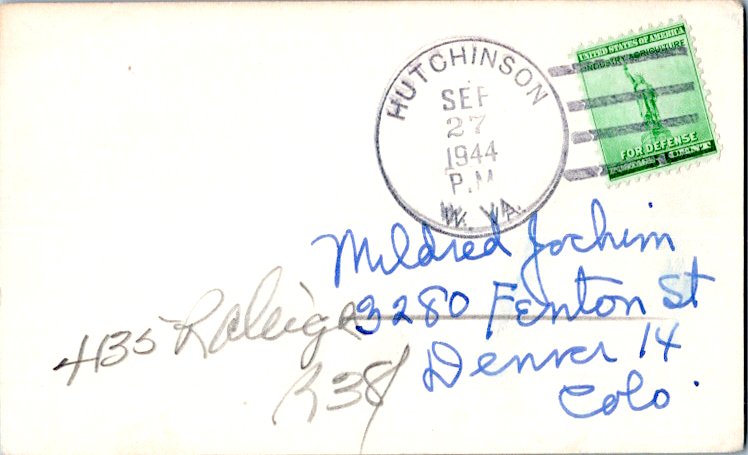 HUTCHINSON
SEP
27
1944
P.M
W. VA.
UNITED STATES OF AMERICA
INDUSTRY AGRICULTURE
FOR DEFENSE
1 CENT
Mildred Jochim
3280 Fenton St
Denver 14
Colo.
435 Raleigh